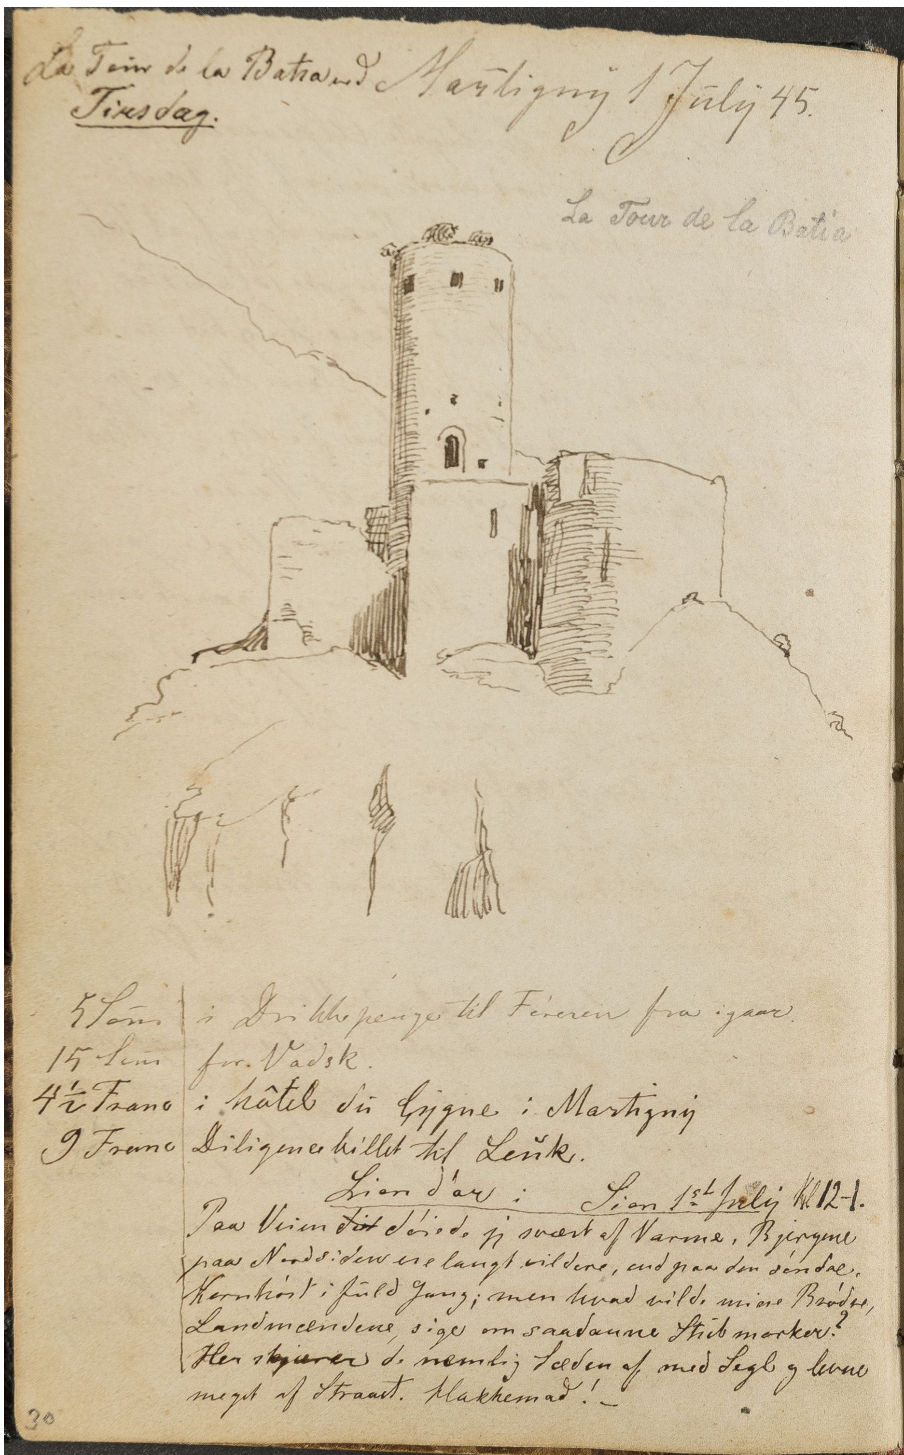 La Tour de la Batia ved Martigny 1 July 45.
Tirsdag.
La Tour de la Batia
5 Sous i Drikkepenge til Føreren fra igaar.
15 Sous for Vadsk.
4½ Franc i hôtel du Cygne i Martigny
9 Franc Diligencebillet til Leuk.
Lion d'or i Sion 1st July Kl 12-1.
Paa Veien døiede jeg svært af Varme. Bjergene
paa Nordsiden ere langt vildere, end paa den søndre.
Kornhøst i fuld Gang; men hvad vilde mine Brødre,
Landmændene, sige om saadanne Stubmarker?
Her skjærer de nemlig Sæden af med Segl og levne
meget af Straaet. Klakkemad! –
30